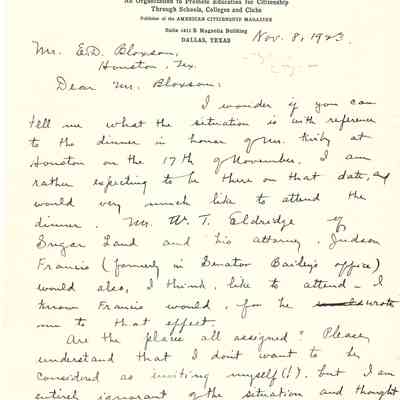 An Organization to Promote Education for Citizenship
Through Schools, Colleges and Clubs
Publisher of the AMERICAN CITIZENSHIP MAGAZINE
Suite 1411 S Magnolia Building
DALLAS, TEXAS
Nov. 8, 1923
Mr. E.D. Bloxsom,
Houston, Tex.
Dear Mr. Bloxsom:
I wonder if you can
tell me what the situation is with reference
to the dinner in honor of Mr. Kirby at
Houston on the 17th of November. I am
rather expecting to be there on that date, and
would very much like to attend the
dinner. Mr. W. T. Eldridge of
Sugar Land and his attorney, Judson
Francis (formerly in Senator Bailey's office)
would also, I think, like to attend - I
know Francis would, for he wrote
me to that effect.
Are the places all assigned? Please
understand that I don't want to be
considered as inviting myself(!), but I am
entirely ignorant of the situation and thought